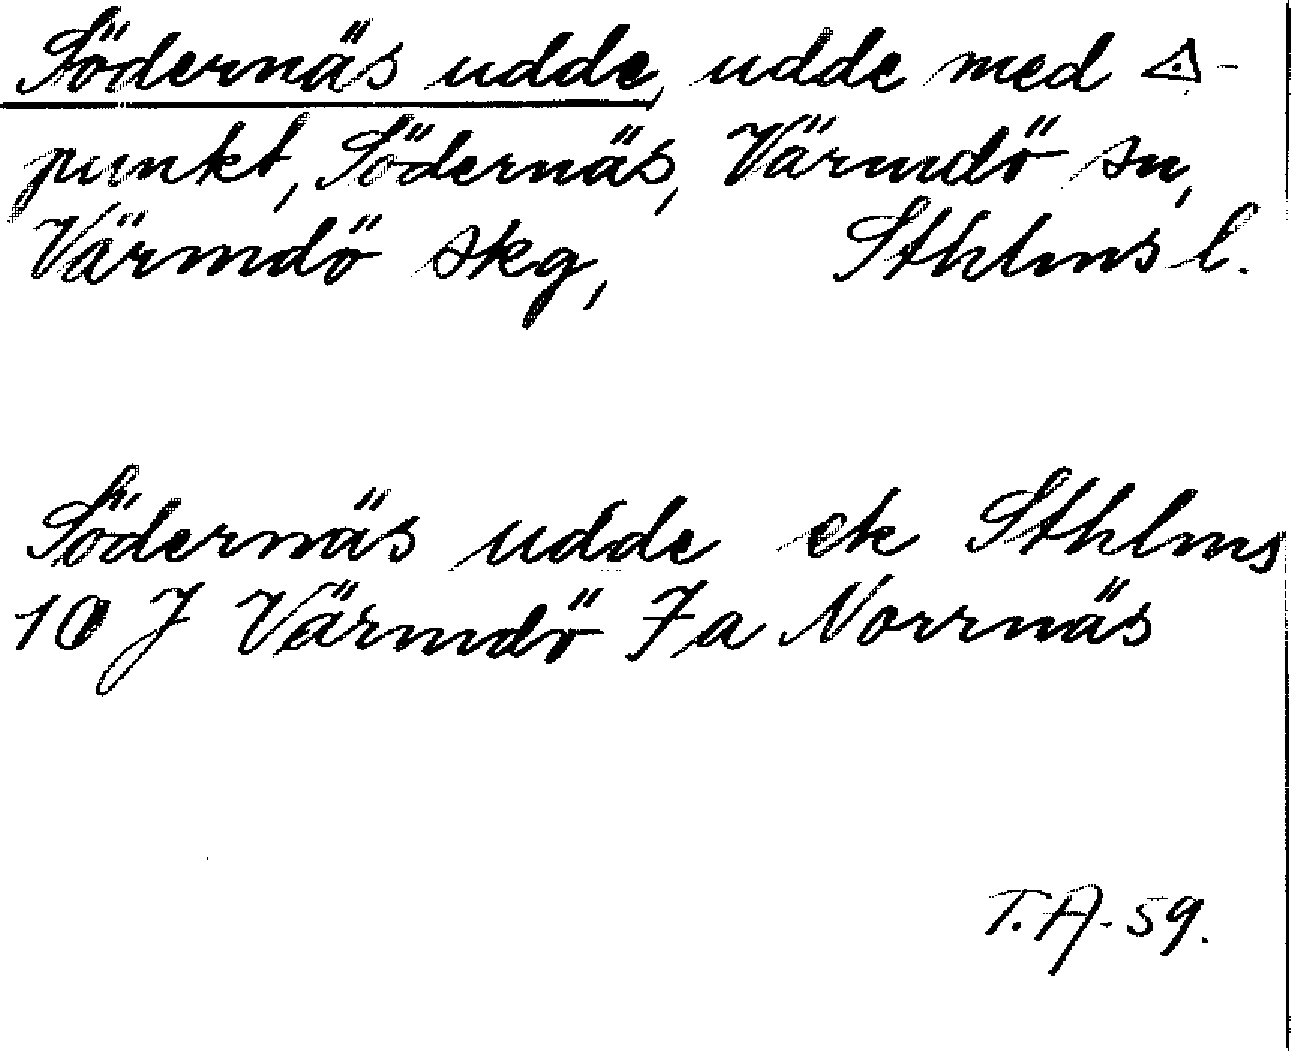 Södernäs udde, udde med △-
punkt, Södernäs, Värmdö sn,
Värmdö skg, Sthlms l.
Södernäs udde ek Sthlms
10 J Värmdö 7a Norrnäs
T.A-59.